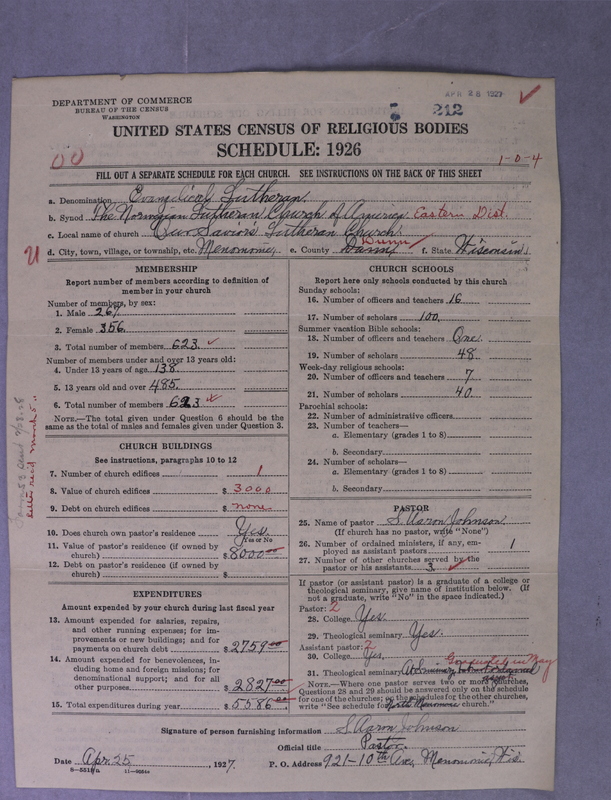 APR 28 1927
DEPARTMENT OF COMMERCE
BUREAU OF THE CENSUS
WASHINGTON
5 212
UNITED STATES CENSUS OF RELIGIOUS BODIES
SCHEDULE: 1926
00
1-0-4
FILL OUT A SEPARATE SCHEDULE FOR EACH CHURCH. SEE INSTRUCTIONS ON THE BACK OF THIS SHEET
a. Denomination Evangelical Lutheran
b. Synod The Norwegian Lutheran Church of America Eastern Dist.
c. Local name of church Our Saviors Lutheran Church
d. City, town, village, or township, etc. Menomonie, e. County Dunn f. State Wisconsin
MEMBERSHIP
Report number of members according to definition of member in your church
Number of members, by sex:
1. Male 267
2. Female 356
3. Total number of members 623
Number of members under and over 13 years old:
4. Under 13 years of age 138
5. 13 years old and over 485
6. Total number of members 623
NOTE.—The total given under Question 6 should be the same as the total of males and females given under Question 3.
CHURCH BUILDINGS
See instructions, paragraphs 10 to 12
7. Number of church edifices 1
8. Value of church edifices $ 3000
9. Debt on church edifices $ none
10. Does church own pastor's residence Yes
Yes or No
11. Value of pastor's residence (if owned by church) $ 8000.00
12. Debt on pastor's residence (if owned by church) $
EXPENDITURES
Amount expended by your church during last fiscal year
13. Amount expended for salaries, repairs, and other running expenses; for improvements or new building; and for payments on church debt $ 2759.00
14. Amount expended for benevolences, including home and foreign missions; for denominational support; and for all other purposes $ 2827.00
15. Total expenditures during year $ 5586.00
CHURCH SCHOOLS
Report here only schools conducted by this church
Sunday schools:
16. Number of officers and teachers 16
17. Number of scholars 100
Summer vacation Bible schools:
18. Number of officers and teachers One
19. Number of scholars 48
Week-day religious schools:
20. Number of officers and teachers 7
21. Number of scholars 40
Parochial schools:
22. Number of administrative officers
23. Number of teachers—
a. Elementary (grades 1 to 8)
b. Secondary
24. Number of scholars—
a. Elementary (grades 1 to 8)
b. Secondary
PASTOR
25. Name of pastor S. Aaron Johnson
(If church has no pastor, write "None")
26. Number of ordained ministers, if any, employed as assistant pastors 1
27. Number of other churches served by the pastor or his assistants 3
If pastor (or assistant pastor) is a graduate of a college or theological seminary, give name of institution below. (If not a graduate, write "No" in the space indicated.)
Pastor: 2
28. College Yes.
29. Theological seminary Yes.
Assistant pastor: 2
30. College Yes,
31. Theological seminary At Seminary
Graduated in May
NOTE.—Where one pastor serves two or more churches, Questions 28 and 29 should be answered only on the schedule for one of the churches; on the schedules for the other churches, write "See schedule for North Menomonie church."
Signature of person furnishing information S. Aaron Johnson
Official title Pastor
Date Apr 25, 1927. P. O. Address 921-10th Ave, Menomonie, Wis.